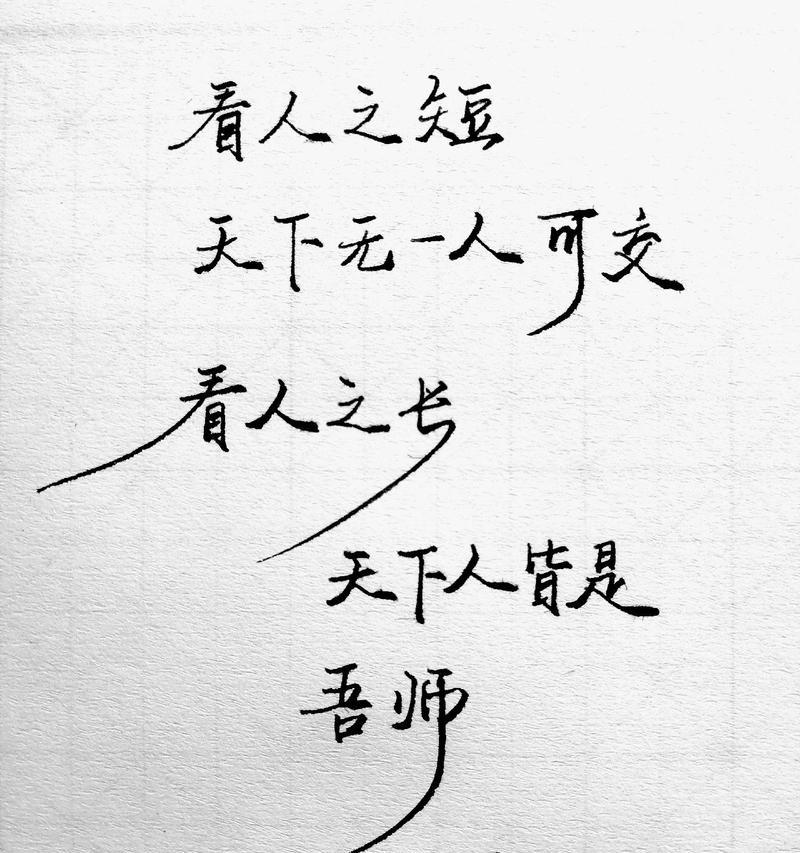 看人之短
天下无一人可交
看人之长
天下人皆是
吾师